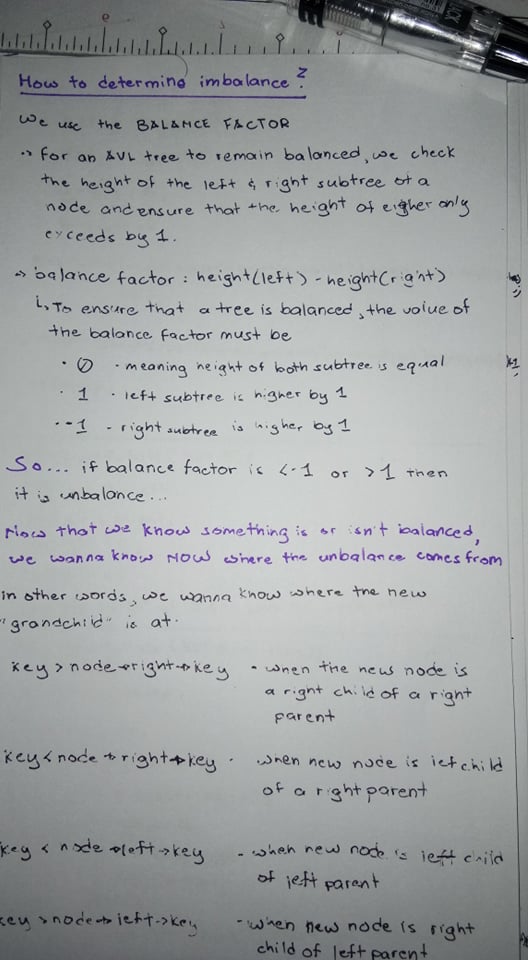 How to determine imbalance?
We use the BALANCE FACTOR
-> For an AVL tree to remain balanced, we check
the height of the left & right subtree of a
node and ensure that the height of eigher only
exceeds by 1.
-> balance factor : height(left) - height(right)
↳ To ensure that a tree is balanced, the value of
the balance factor must be
· 0 - meaning height of both subtree is equal
· 1 - left subtree is higher by 1
· -1 - right subtree is higher by 1
So... if balance factor is <-1 or >1 then
it is unbalance...
Now that we know something is or isn't balanced,
we wanna know NOW where the unbalance comes from
in other words, we wanna know where the new
"grandchild" is at.
key > node->right->key - when the new node is
a right child of a right
parent
key < node->right->key - when new node is left child
of a right parent
key < node->left->key - when new node is left child
of left parent
key > node->left->key - when new node is right
child of left parent